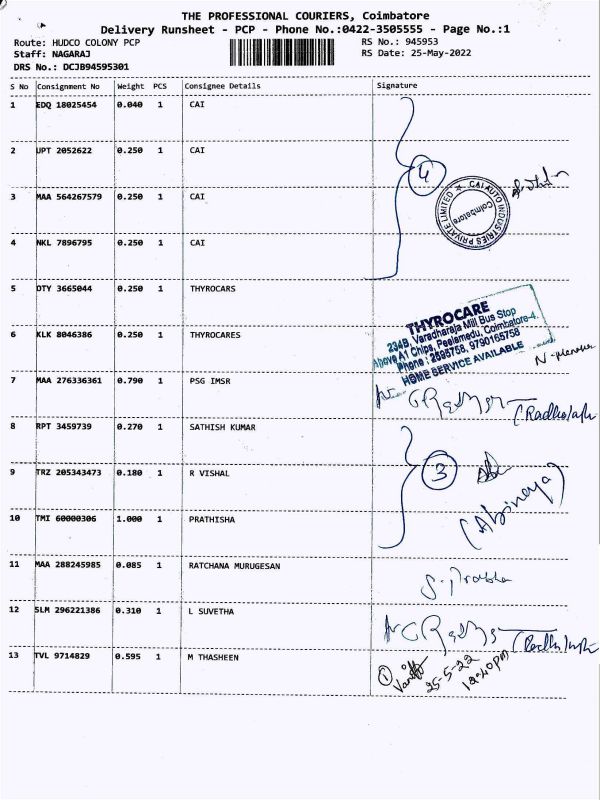 THE PROFESSIONAL COURIERS, Coimbatore
Delivery Runsheet - PCP - Phone No.:0422-3505555 - Page No.:1
Route: HUDCO COLONY PCP RS No.: 945953
Staff: NAGARAJ RS Date: 25-May-2022
DRS No.: DCJB94595301
S No Consignment No Weight PCS Consignee Details Signature
1 EDQ 18025454 0.040 1 CAI
2 UPT 2052622 0.250 1 CAI
4
3 MAA 564267579 0.250 1 CAI
CAI AUTO INDUSTRIES PRIVATE LIMITED
Coimbatore
4 NKL 7896795 0.250 1 CAI
5 OTY 3665044 0.250 1 THYROCARS
THYROCARE
234B, Varadharaja Mill Bus Stop
Above A1 Chips, Peelamedu, Coimbatore-4.
Phone : 2595758, 9790165758
HOME SERVICE AVAILABLE
6 KLK 8046386 0.250 1 THYROCARES
7 MAA 276336361 0.790 1 PSG IMSR
8 RPT 3459739 0.270 1 SATHISH KUMAR
9 TRZ 205343473 0.180 1 R VISHAL
3
(Abinaya)
10 TMI 60000306 1.000 1 PRATHISHA
11 MAA 288245985 0.085 1 RATCHANA MURUGESAN
S. Prabha
12 SLM 296221386 0.310 1 L SUVETHA
13 TVL 9714829 0.595 1 M THASHEEN
1
25-5-22
12:40PM